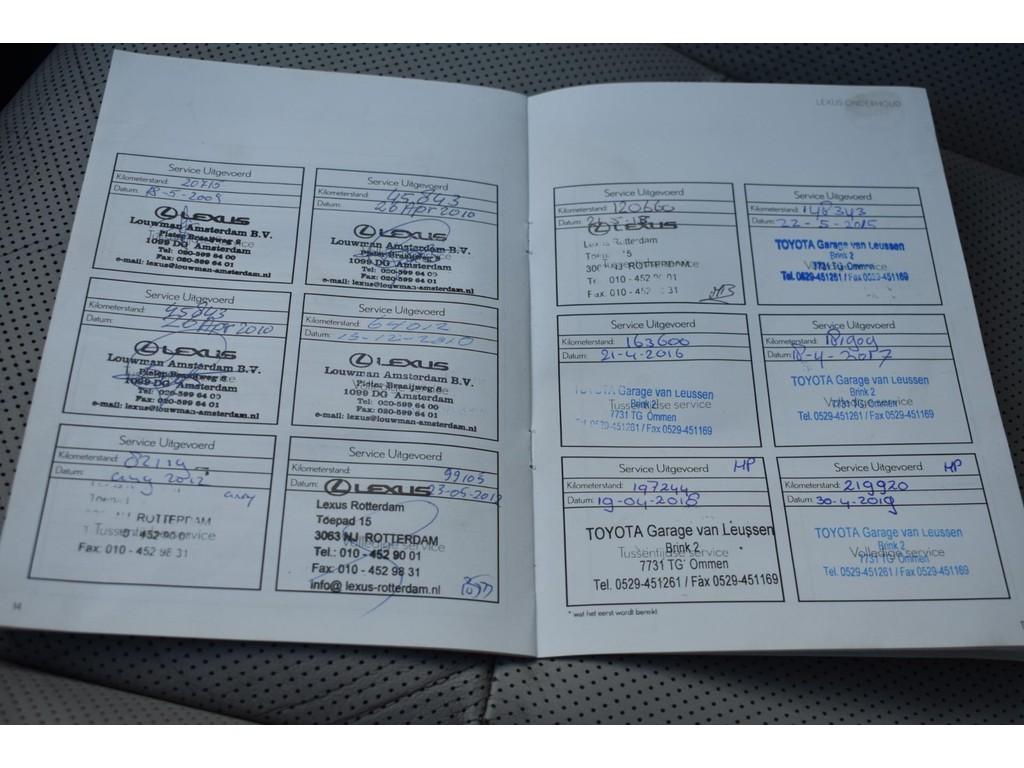 Service Uitgevoerd
Kilometerstand: 20710
Datum: 18-5-2009
LEXUS
Louwman Amsterdam B.V.
Pieter Braaijweg 8
1099 DG Amsterdam
Tel: 020-599 64 00
Fax: 020-599 64 01
e-mail: lexus@louwman-amsterdam.nl
Service Uitgevoerd
Kilometerstand: 45843
Datum: 20 Apr 2010
LEXUS
Louwman Amsterdam B.V.
Pieter Braaijweg 8
1099 DG Amsterdam
Tel: 020-599 64 00
Fax: 020-599 64 01
e-mail: lexus@louwman-amsterdam.nl
Service Uitgevoerd
Kilometerstand: 45843
Datum: 20 Apr 2010
LEXUS
Louwman Amsterdam B.V.
Pieter Braaijweg 8
1099 DG Amsterdam
Tel: 020-599 64 00
Fax: 020-599 64 01
e-mail: lexus@louwman-amsterdam.nl
Service Uitgevoerd
Kilometerstand: 64012
Datum: 15-12-2010
LEXUS
Louwman Amsterdam B.V.
Pieter Braaijweg 8
1099 DG Amsterdam
Tel: 020-599 64 00
Fax: 020-599 64 01
e-mail: lexus@louwman-amsterdam.nl
Service Uitgevoerd
Kilometerstand:
Datum: aug 2012
ROTTERDAM
Tussentijdse service
452 90 01
Fax: 010 - 452 98 31
Service Uitgevoerd
Kilometerstand: 99105
Datum: 23-05-2012
LEXUS
Lexus Rotterdam
Toepad 15
3063 NJ ROTTERDAM
Volledige service
Tel.: 010 - 452 90 01
Fax: 010 - 452 98 31
info@lexus-rotterdam.nl
14
LEXUS ONDERHOUD
Service Uitgevoerd
Kilometerstand: 120660
Datum:
LEXUS
Lexus Rotterdam
15
NJ ROTTERDAM
010 - 452 01
Fax. 010 - 452 31
Service Uitgevoerd
Kilometerstand: 148343
Datum: 22-5-2015
TOYOTA Garage van Leussen
Brink 2
Volledige service
7731 TG Ommen
Tel. 0529-451261 / Fax 0529-451169
Service Uitgevoerd
Kilometerstand: 163600
Datum: 21-4-2016
TOYOTA Garage van Leussen
Brink 2
Tussentijdse service
7731 TG Ommen
Tel. 0529-451261 / Fax 0529-451169
Service Uitgevoerd
Kilometerstand: 181909
Datum: 18-4-2017
TOYOTA Garage van Leussen
Brink 2
Volledige service
7731 TG Ommen
Tel. 0529-451261 / Fax 0529-451169
Service Uitgevoerd MP
Kilometerstand: 197244
Datum: 19-04-2018
TOYOTA Garage van Leussen
Brink 2
Tussentijdse service
7731 TG Ommen
Tel. 0529-451261 / Fax 0529-451169
Service Uitgevoerd MP
Kilometerstand: 219920
Datum: 30-4-2019
TOYOTA Garage van Leussen
Brink 2
Volledige service
7731 TG Ommen
Tel. 0529-451261 / Fax 0529-451169
* wat het eerst wordt bereikt